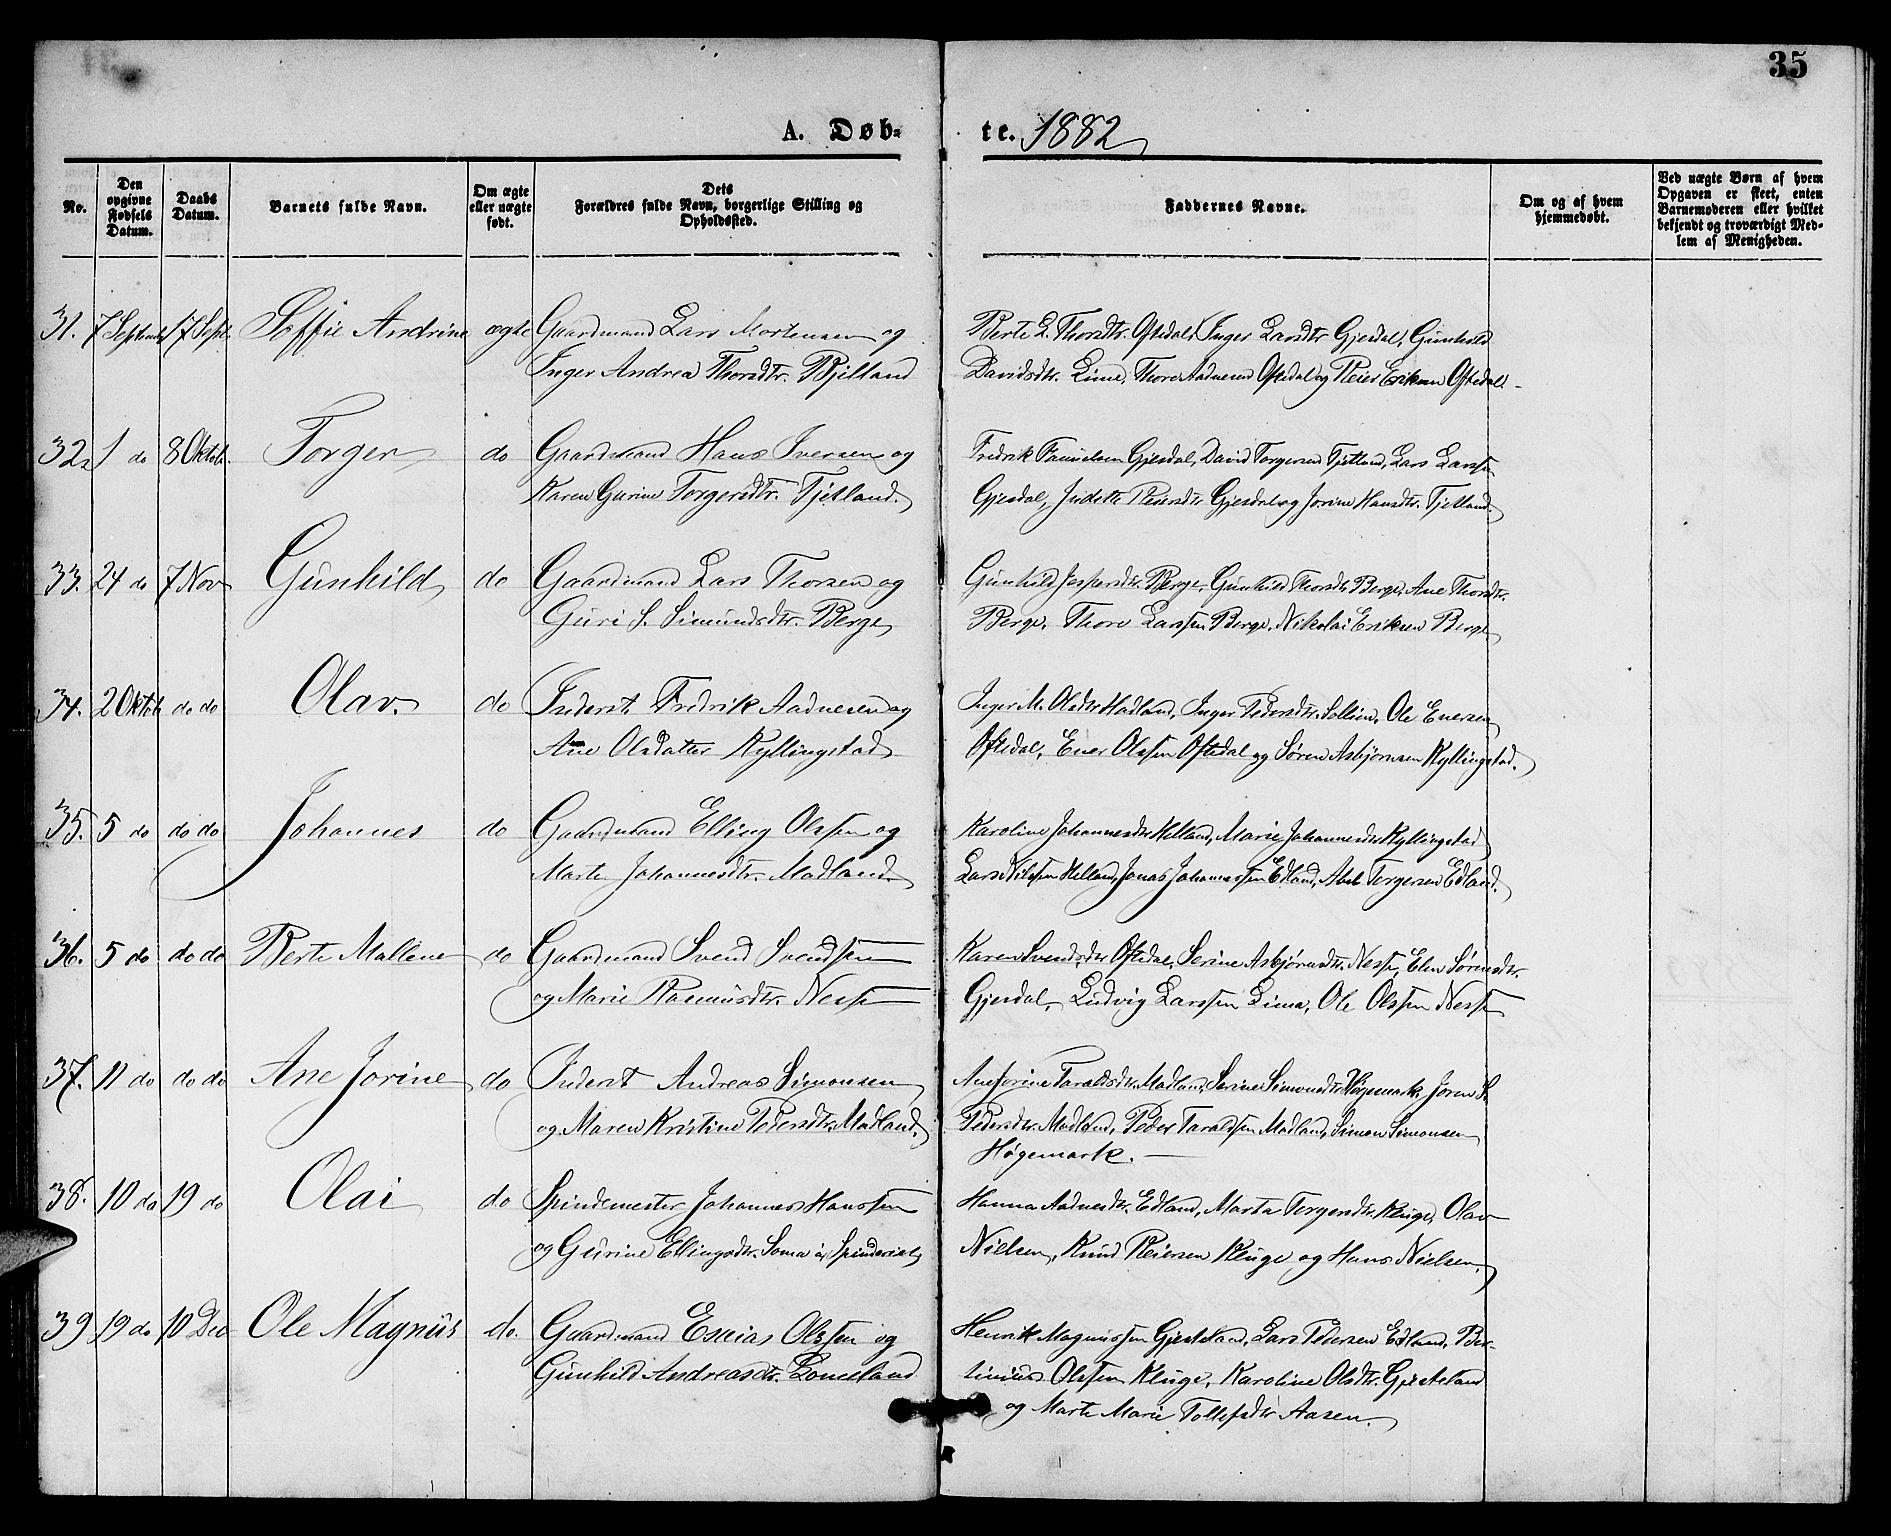 35
A. Døb-
te. 1882
No.
Den opgivne Fødsels Datum.
Daabs Datum.
Barnets fulde Navn.
Om ægte eller uægte født.
Dets Forældres fulde Navn, borgerlige Stilling og Opholdssted.
Faddernes Navne.
Om og af hvem hjemmedøbt.
Ved uægte Børn af hvem Opgaven er skeet, enten Barnemoderen eller hvilket bekjendt og troværdigt Medlem af Menigheden.
31. 7 Septemb 17 Sept. Soffie Andrine ægte Gaardmand Lars Mortensen og
Inger Andrea Thorsdtr. Bjelland
Berte L. Thorsdtr. Oftedal, Inger Larsdtr Gjesdal, Gunhild
Davidsdtr. Lime, Thore Aadnesen Oftedal og Reier Eriksen Oftedal
32. 1 do 8 Oktob. Torger do Gaardmand Hans Iversen og
Karen Gurine Torgersdtr. Tjetland.
Fredrik Gjesdal, David Torgersen Tjetland, Lars Larssen
Gjesdal, Judith Reiersdtr Gjesdal og Jorine Hansdtr. Tjetland.
33. 24 do 7 Nov Gunhild do Gaardmand Lars Thorsen og
Guri S. Simundsdtr. Berge
Gunhild Jespersdtr. Berge, Gunhild Thorsdtr Berge, Ane Thorsdtr.
Berge, Thore Larssen Berge, Nikolai Eriksen Berge
34. 2 Oktob do do Olav. do Inderst Fredrik Aadnesen og
Ane Olsdatter Kyllingstad
Inger M. Olsdtr Madland, Inger Pedersdtr. Solliem, Ole Enersen
Oftedal, Ener Olssen Oftedal og Søren Asbjørnsen Kyllingstad.
35. 5 do do do Johannes do Gaardmand Elling Olssen og
Marte Johannesdtr. Madland.
Karoline Johannesdtr Helland, Marie Johannesdtr Kyllingstad
Lars Nilssen Helland, Jonas Johannessen Edland, Abel Torgersen Edland.
36. 5 do do do Berte Mallene do Gaardmand Svend Svendsen
og Marie Rasmusdtr. Nesse
Karen Svendsdtr Oftedal, Serine Asbjørnsdtr. Nesse, Elen Sørensdtr.
Gjesdal, Ludvig Larssen Lima, Ole Olssen Nesse
37. 11 do do do Ane Jorine do Inderst Andreas Simonsen
og Maren Kristine Pedersdtr. Madland.
Ane Jorine Taraldsdtr. Madland, Serine Simonsdtr Høgemark, Joren S.
Pedersdtr. Madland, Peder Taraldsen Madland, Simon Simonsen
Høgemark.
38. 10 do 19 do Olai do Spindemester Johannes Hanssen
og Gurine Ellingsdtr. Soma
Hanna Aadnesdtr. Edland, Marta Torgersdtr. Kluge, Olav
Nielsen, Knud Reiersen Kluge og Hans Nielsen.
39. 19 do 10 Dec Ole Magnus do. Gaardmand Esaias Olssen og
Gunhild Andreasdtr. Lomeland
Henrik Magnussen Gjesteland, Lars Pedersen Edland, Ber-
tinius Olssen Kluge, Karoline Olsdtr. Gjesteland
og Marte Marie Tollefsdtr Aasen.